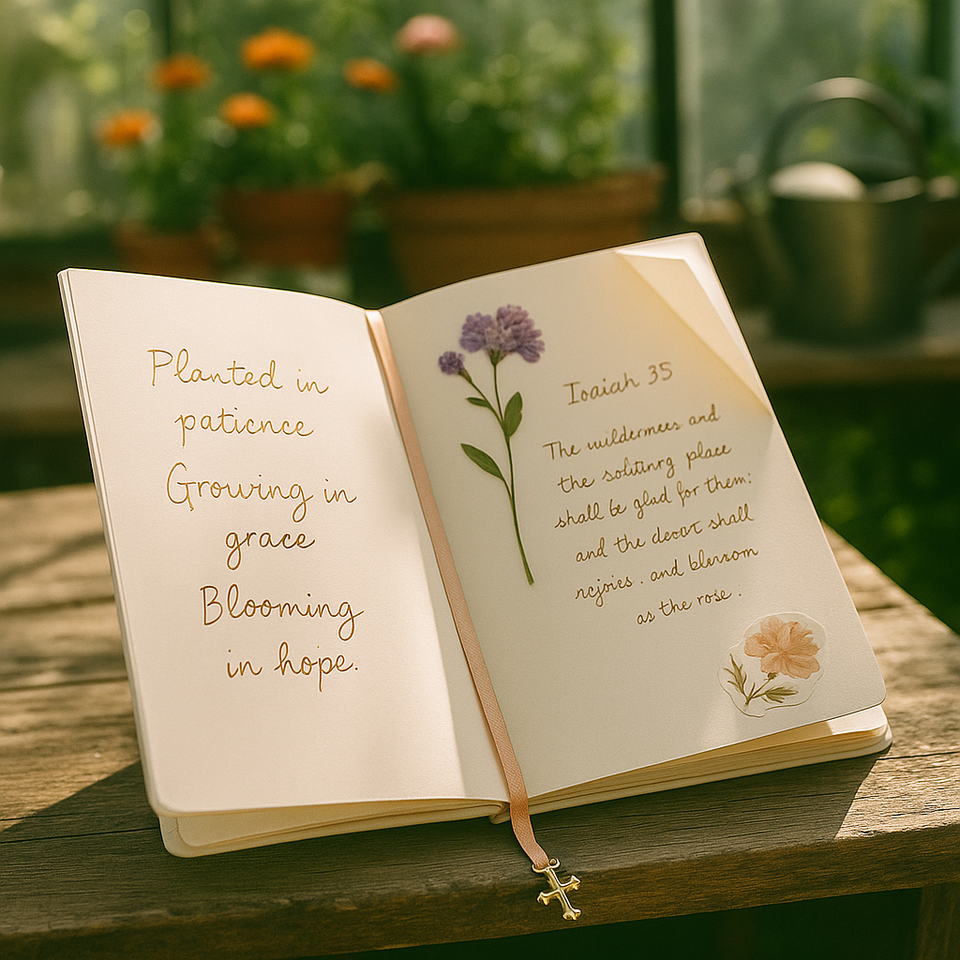 Planted in
paticnce
Growing in
grace
Blooming
in hope.
Ioaiah 35
The wildermees and
the solitinrg place
shall be glad for them:
and the decot shall
rcjoies . and blewsom
as the rose .